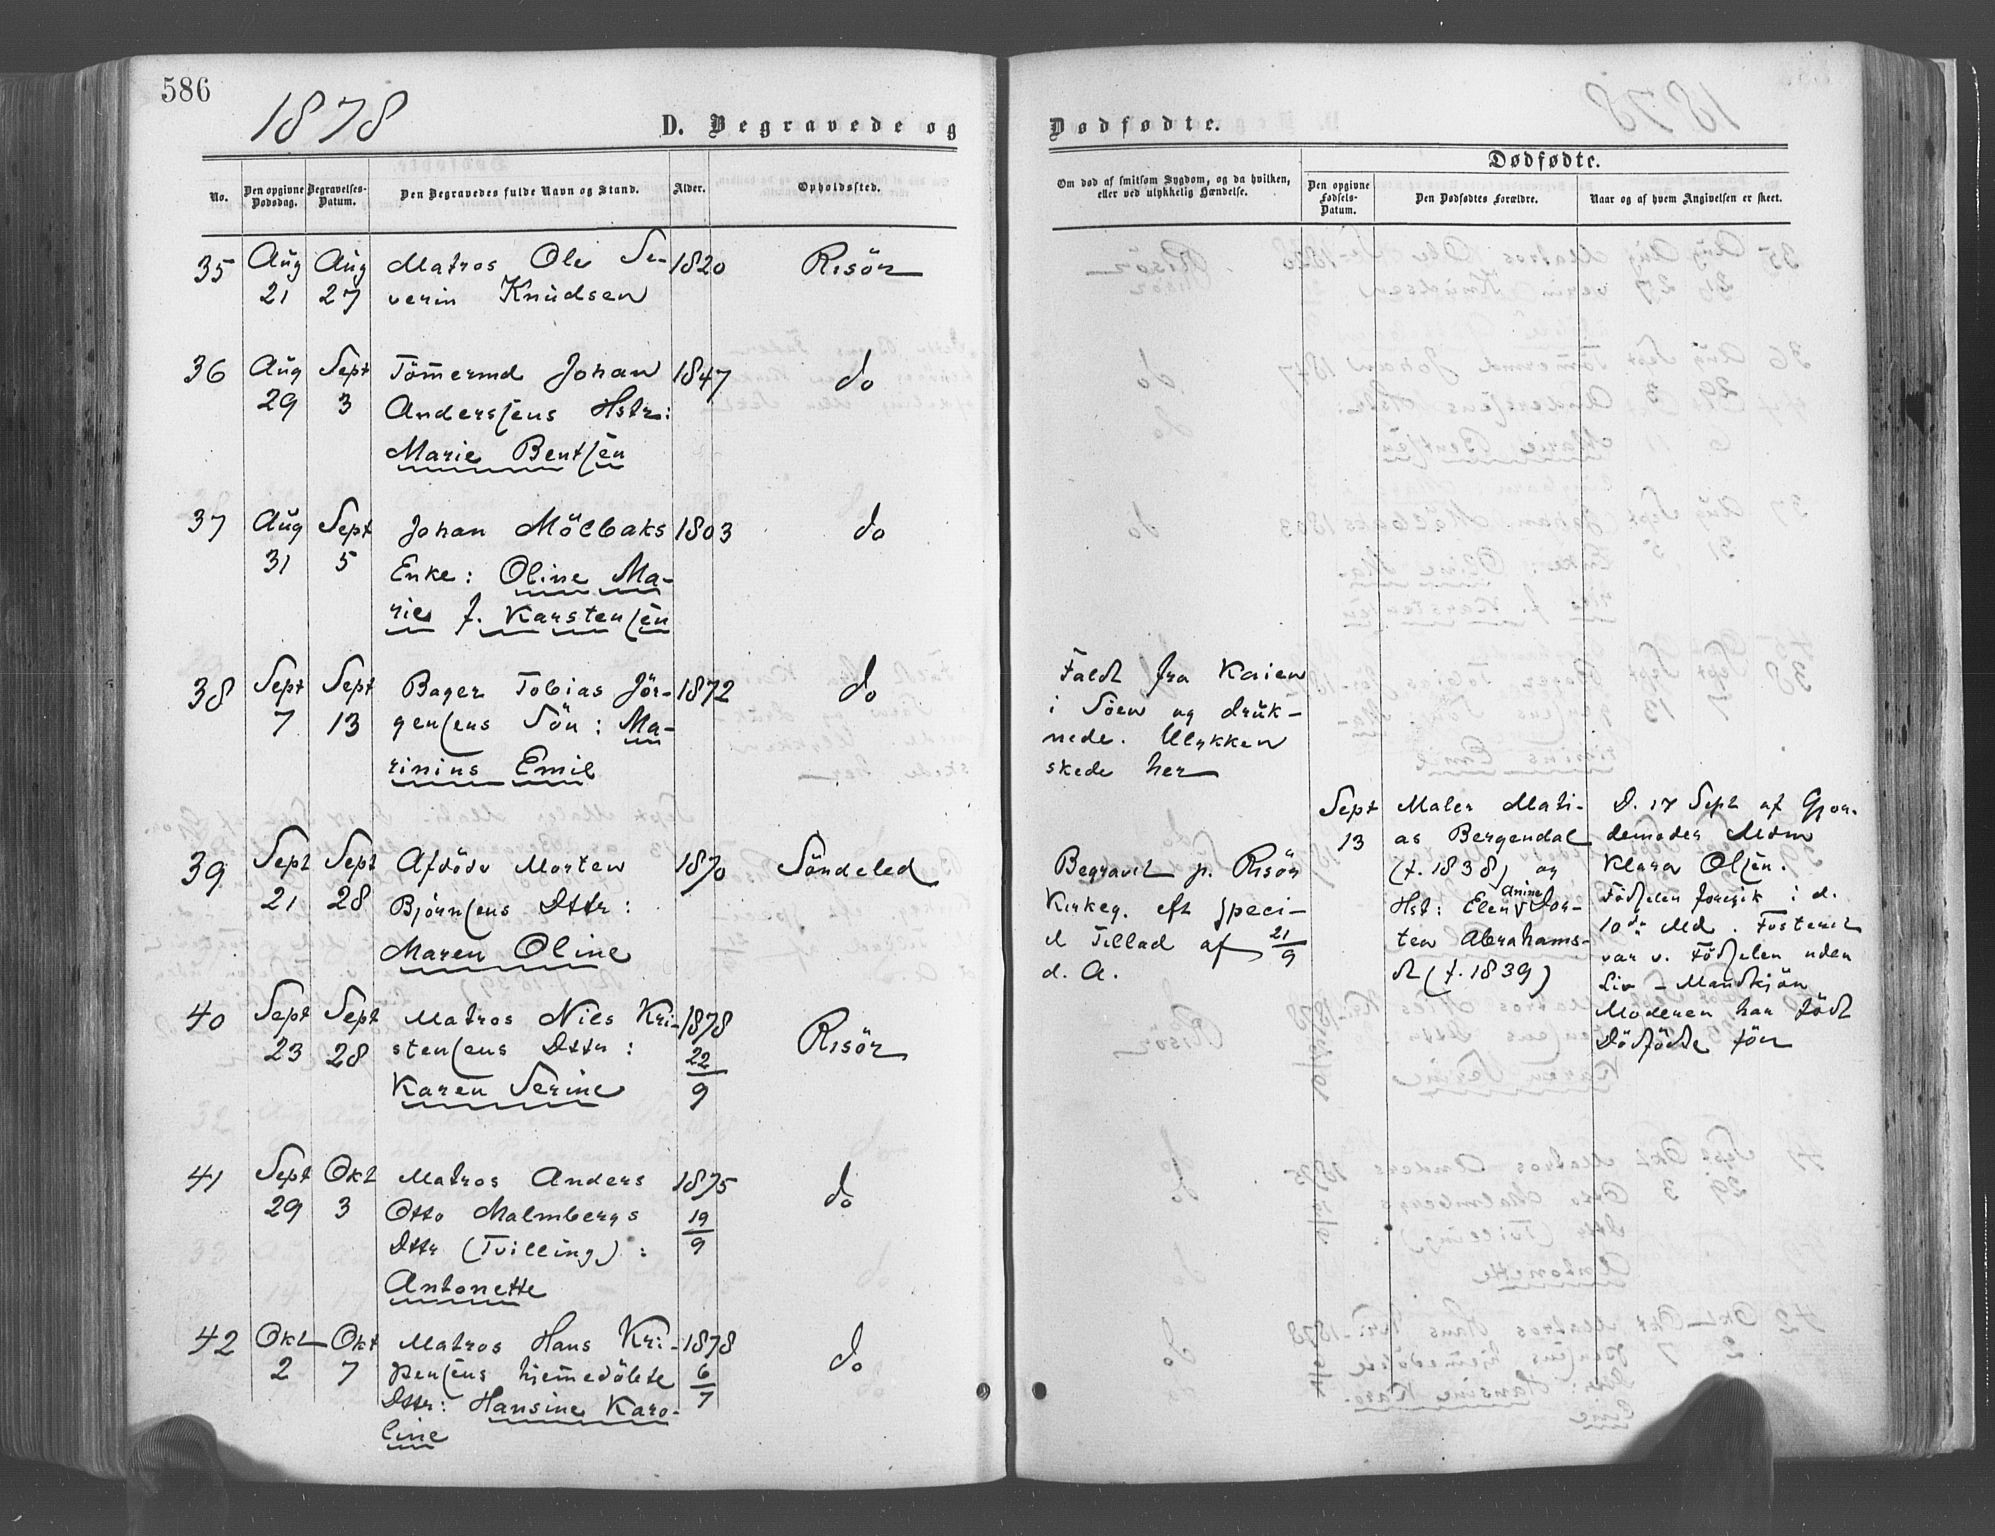 586
1878
D. Begravede og
No.
Den opgivne Dødsdag.
Begravelses-Datum.
Den Begravedes fulde Navn og Stand.
Alder.
Opholdssted.
35 Aug Aug Matros Ole Se- 1820 Risör
21 27 verin Knudsen
36 Aug Sept Tömermd Johan 1847 do
29 3 Anderssens Hstr:
Marie Bentsen
37 Aug Sept Johan Mölbaks 1803 do
31 5 Enke: Oline Ma-
rie f. Karstensen
38 Sept Sept Bager Tobias Jör- 1872 do
7 13 gensens Sön: Ma-
rinius Emil
39 Sept Sept Afdöde Morten 1870 Söndeled
21 28 Bjørnsens Dttr:
Maren Oline
40 Sept Sept Matros Niels Kri- 1878 Risör
23 28 stensens Dttr: 22/9
Karen Serine
41 Sept Okt Matros Anders 1875 do
29 3 Otto Malmbergs 19/9
Dttr (Tvilling):
Antonette
42 Okt Okt Matros Hans Kri- 1878 do
2 7 stensens hjemmedöbte 6/7
Dttr: Hansine Karo-
line
Dødfødte.
Om død af smitsom Sygdom, og da hvilken,
eller ved ulykkelig Hændelse.
Dødfødte.
Den opgivne Fødsels-Datum.
Den Dødfødtes Forældre.
Naar og af hvem Angivelsen er skeet.
Faldt fra Kaien
i Söen og druk-
nede. Ulykken
skede her
Begravet p. Risör
Kirkeg. eft speci-
el Tillad af 21/9
d. A.
Sept
13
Maler Mati-
as Bergendal
(f. 1838) og
Hst: Elen Anine Dor-
tea Abrahams-
dt (f. 1839)
D. 17 Sept af Gjor-
demoder Mdm
Klara Olsen.
Födselen foregik i d.
10de Md. Fosteret
var v. Födselen uden
Liv – Mandkjön
Moderen har födt
Dödfödte för